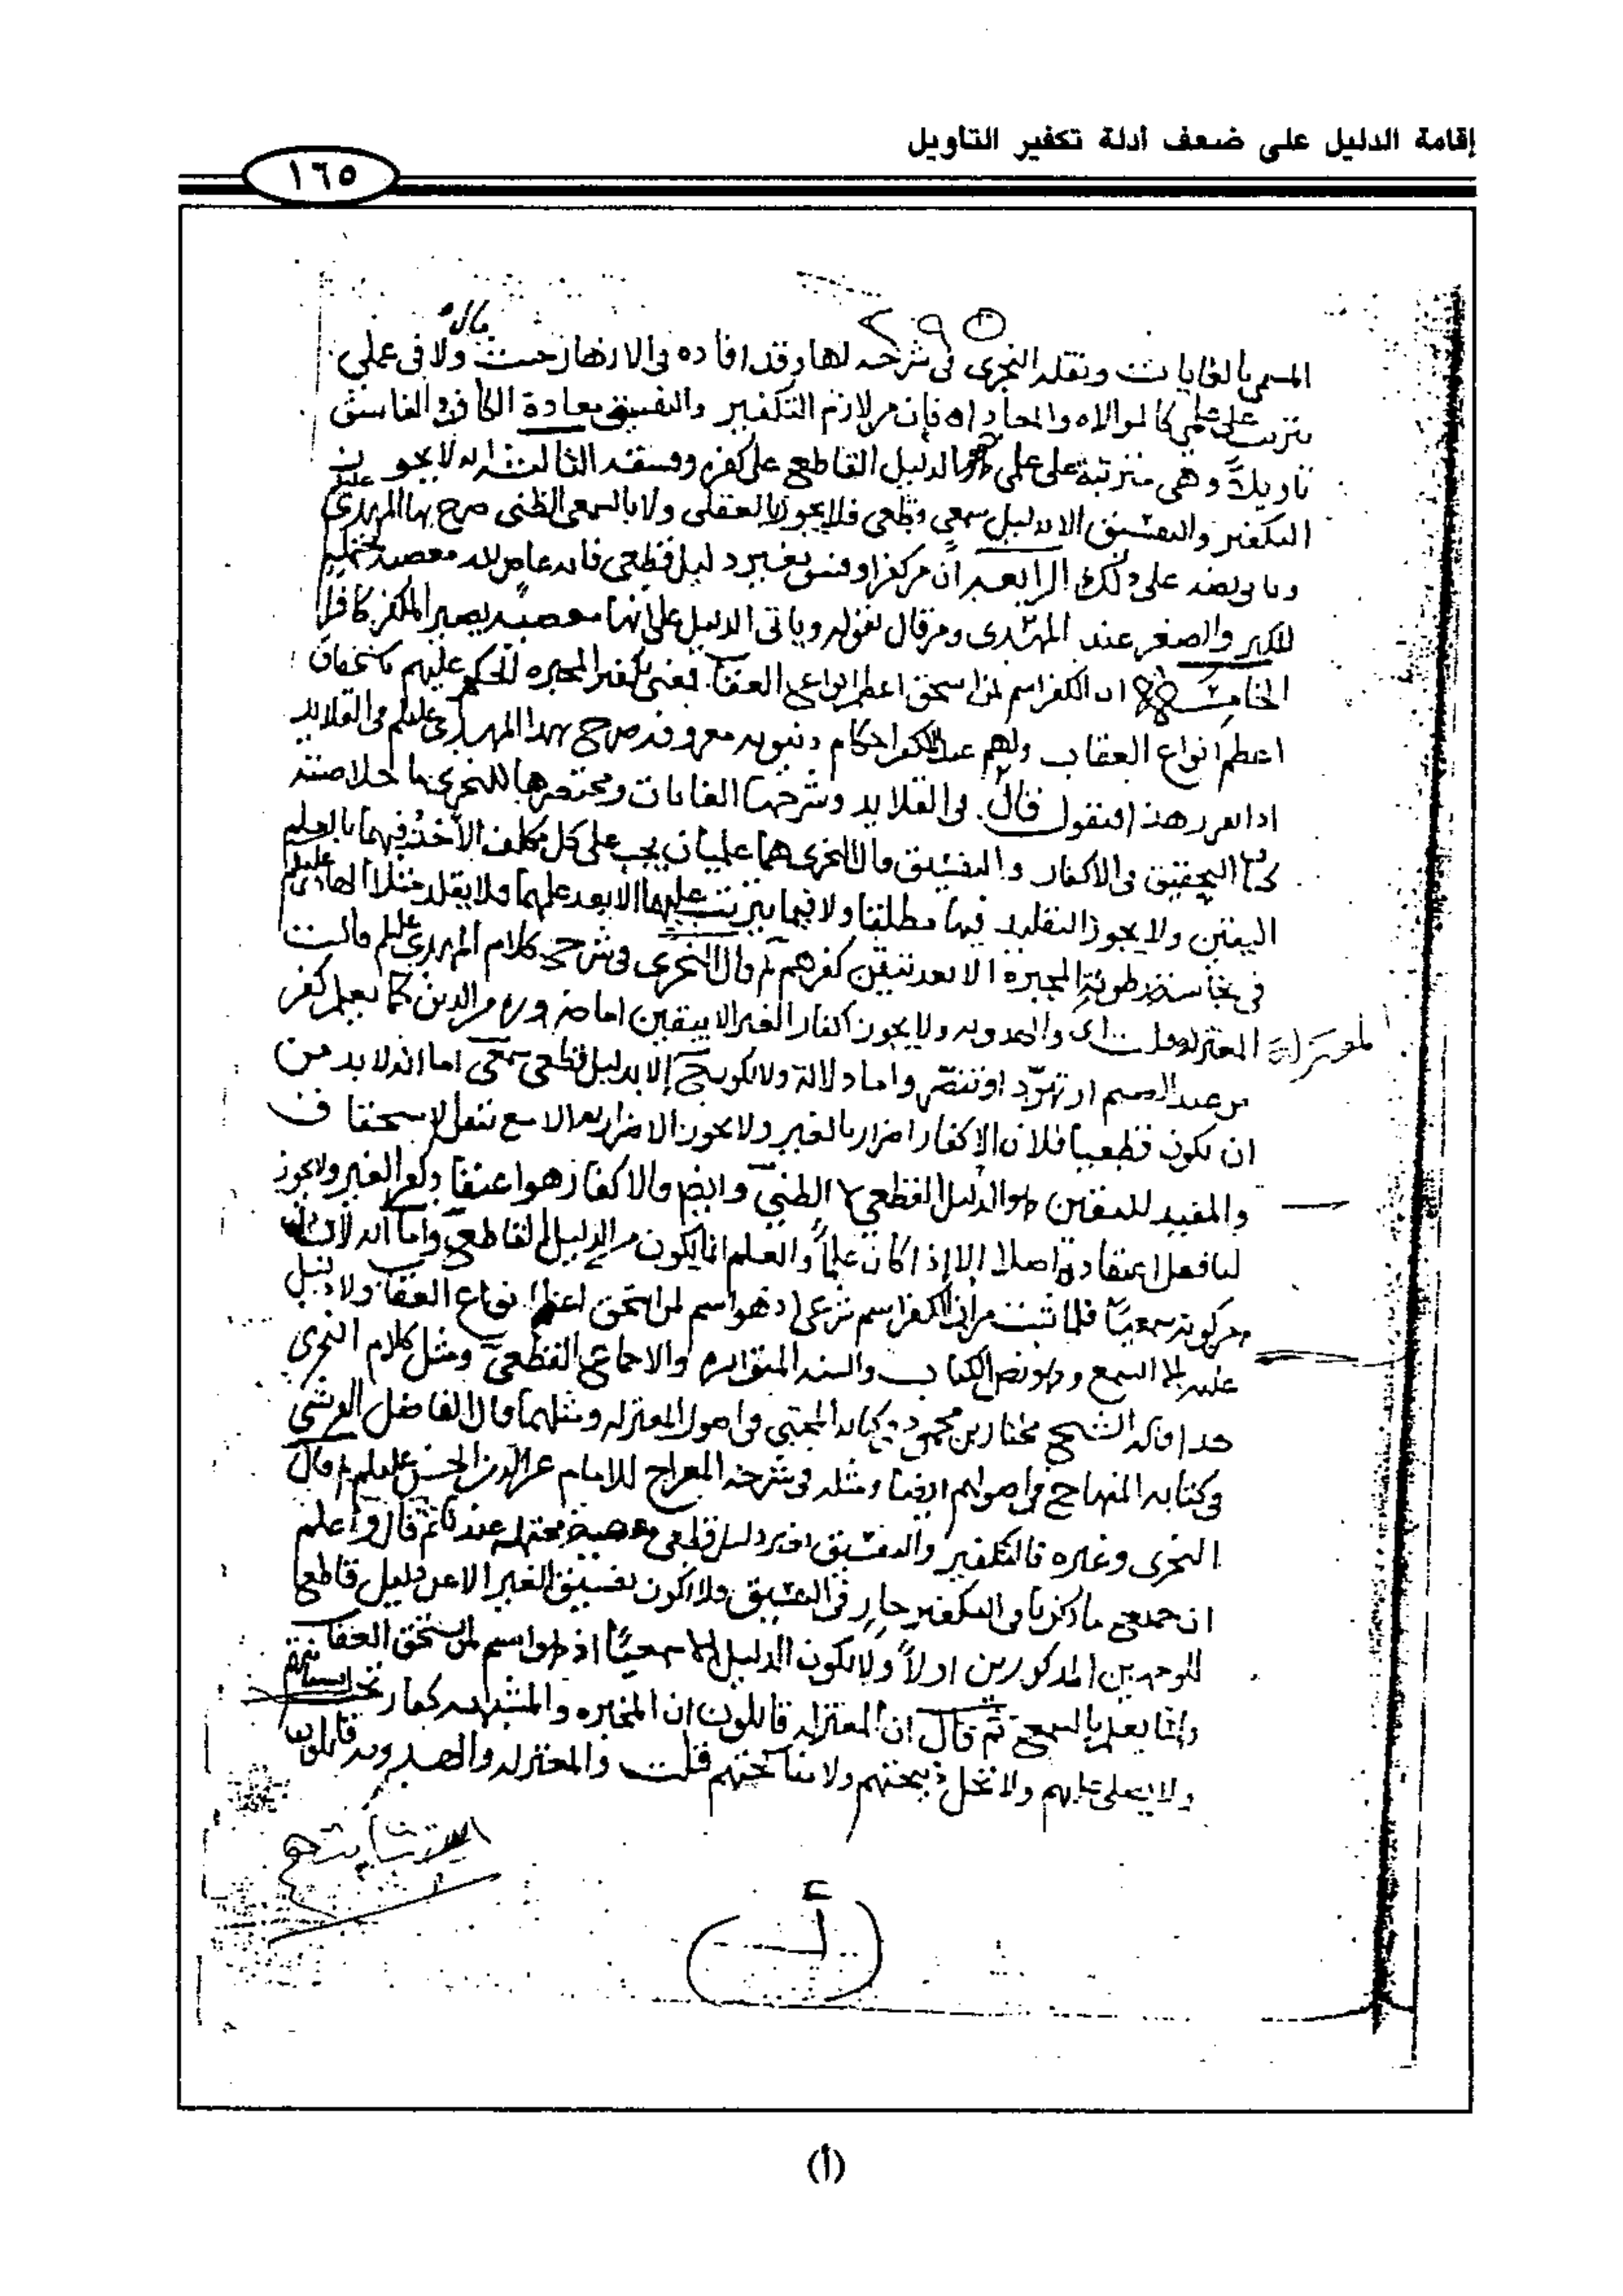 إقامة الدليل على ضعف أدلة تكفير التأويل
١٦٥
٢٩٥
المسمى بالغايات ونقله النجرى في شرحه لها وقد افاده في الازهار حيث قال ولا في عملي
يترتب على علمي كالموالاه والمعاداه فإن من لازم التكفير والتفسيق معاداة الكافر والفاسق
تاويلاً وهي مترتبة على علمي وهو الدليل القاطع على كفره وفسقه الثالث انه لا يجوز
التكفير والتفسيق الا بدليل سمعي قطعي فلا يجوز بالعقلى ولا بالسمعى الظنى صرح بها المهدي عليلم
وياتي نصه على ذلك الرابعه ان من كفر او فسق بغير دليل قطعي فانه عاص لله معصية محتملة
للكبر والصغر عند المهدى ومن قال بقوله وياتى الدليل على انها معصية يصير المكفر كافرا
الخامسة ان الكفر اسم لمن استحق اعظم انواع العقاب فمعنى تكفير المجبره الحكم عليهم باستحقاق
اعظم انواع العقاب ولهم عند المكفر احكام دنيويه معروفه صرح بهذا المهدي عليلم في القلايد
اذا تقرر هذا فنقول قال في القلايد وشرحها الغايات ومختصرها للنجرى ما خلاصته
التحقيق في الاكفار والتفسيق قال النجرى هما علميان يجب على كل مكلف الأخذ فيهما بالعلم
اليقين ولا يجوز التقليد فيها مطلقا ولا فيما يترتب عليها الا بعد علمها ولا يقلد مثلا الهادي عليلم
في نجاسة رطوبة المجبرة الا بعد تيقن كفرهم ثم قال النجرى في شرح كلام المهدي عليلم قالت
المعتزله قلت اي والعدويه ولا يجوز اكفار الغير الا بيقين اما ضروره من الدين كما يعلم كفر
من عبد الصنم او تهوّد او تنصّر واما دلالة ولا تكون إلا بدليل قطعى سمعى اما انه لا بد من
ان يكون قطعيا فلان الاكفار اضرار بالغير ولا يجوز الاضرار به الا مع تيقن الاستحقاق
والمفيد لليقين هو الدليل القطعي لا الظني وايضا فالاكفار هو اعتقاد كفر الغير ولا يجوز
لنا فعل اعتقاد اصلا إلا إذا كان علماً والعلم انما يكون من الدليل القاطع واما انه لا بد
من كونه سمعياً فلما ثبت من أن الكفر اسم شرعى اذ هو اسم لمن استحق اعظم انواع العقاب ولا دليل
عليه إلا السمع وهو نص الكتاب والسنه المتواتره والاجماع القطعي ومثل كلام النجرى
هذا قاله الشيخ مختار بن محمود في كتابه المجتبى في اصول المعتزله ومثلهما قال الفاضل القرشي
في كتابه المنهاج في اصولهم ايضا ومثله في شرحه المعراج للامام عز الدين بن الحسن عليلم قال
النجرى وغيره فالتكفير والتفسيق بغير دليل قطعي معصية محتملة عندنا ثم قال واعلم
ان جميع ما ذكرنا في التكفير جار في التفسيق فلا يكون تفسيق الغير الا عن دليل قاطع
للوجهين المذكورين اولاً ولا يكون الدليل إلا سمعياً اذ هو اسم لمن يستحق العقاب
وانما يعلم بالسمع ثم قال ان المعتزله قايلون ان المجبره والمشبهه كفار
ولا يصلى عليهم ولا تحل ذبيحتهم ولا مناكحتهم قلت والمعتزله والعدويه قايلون
(أ)
(أ)